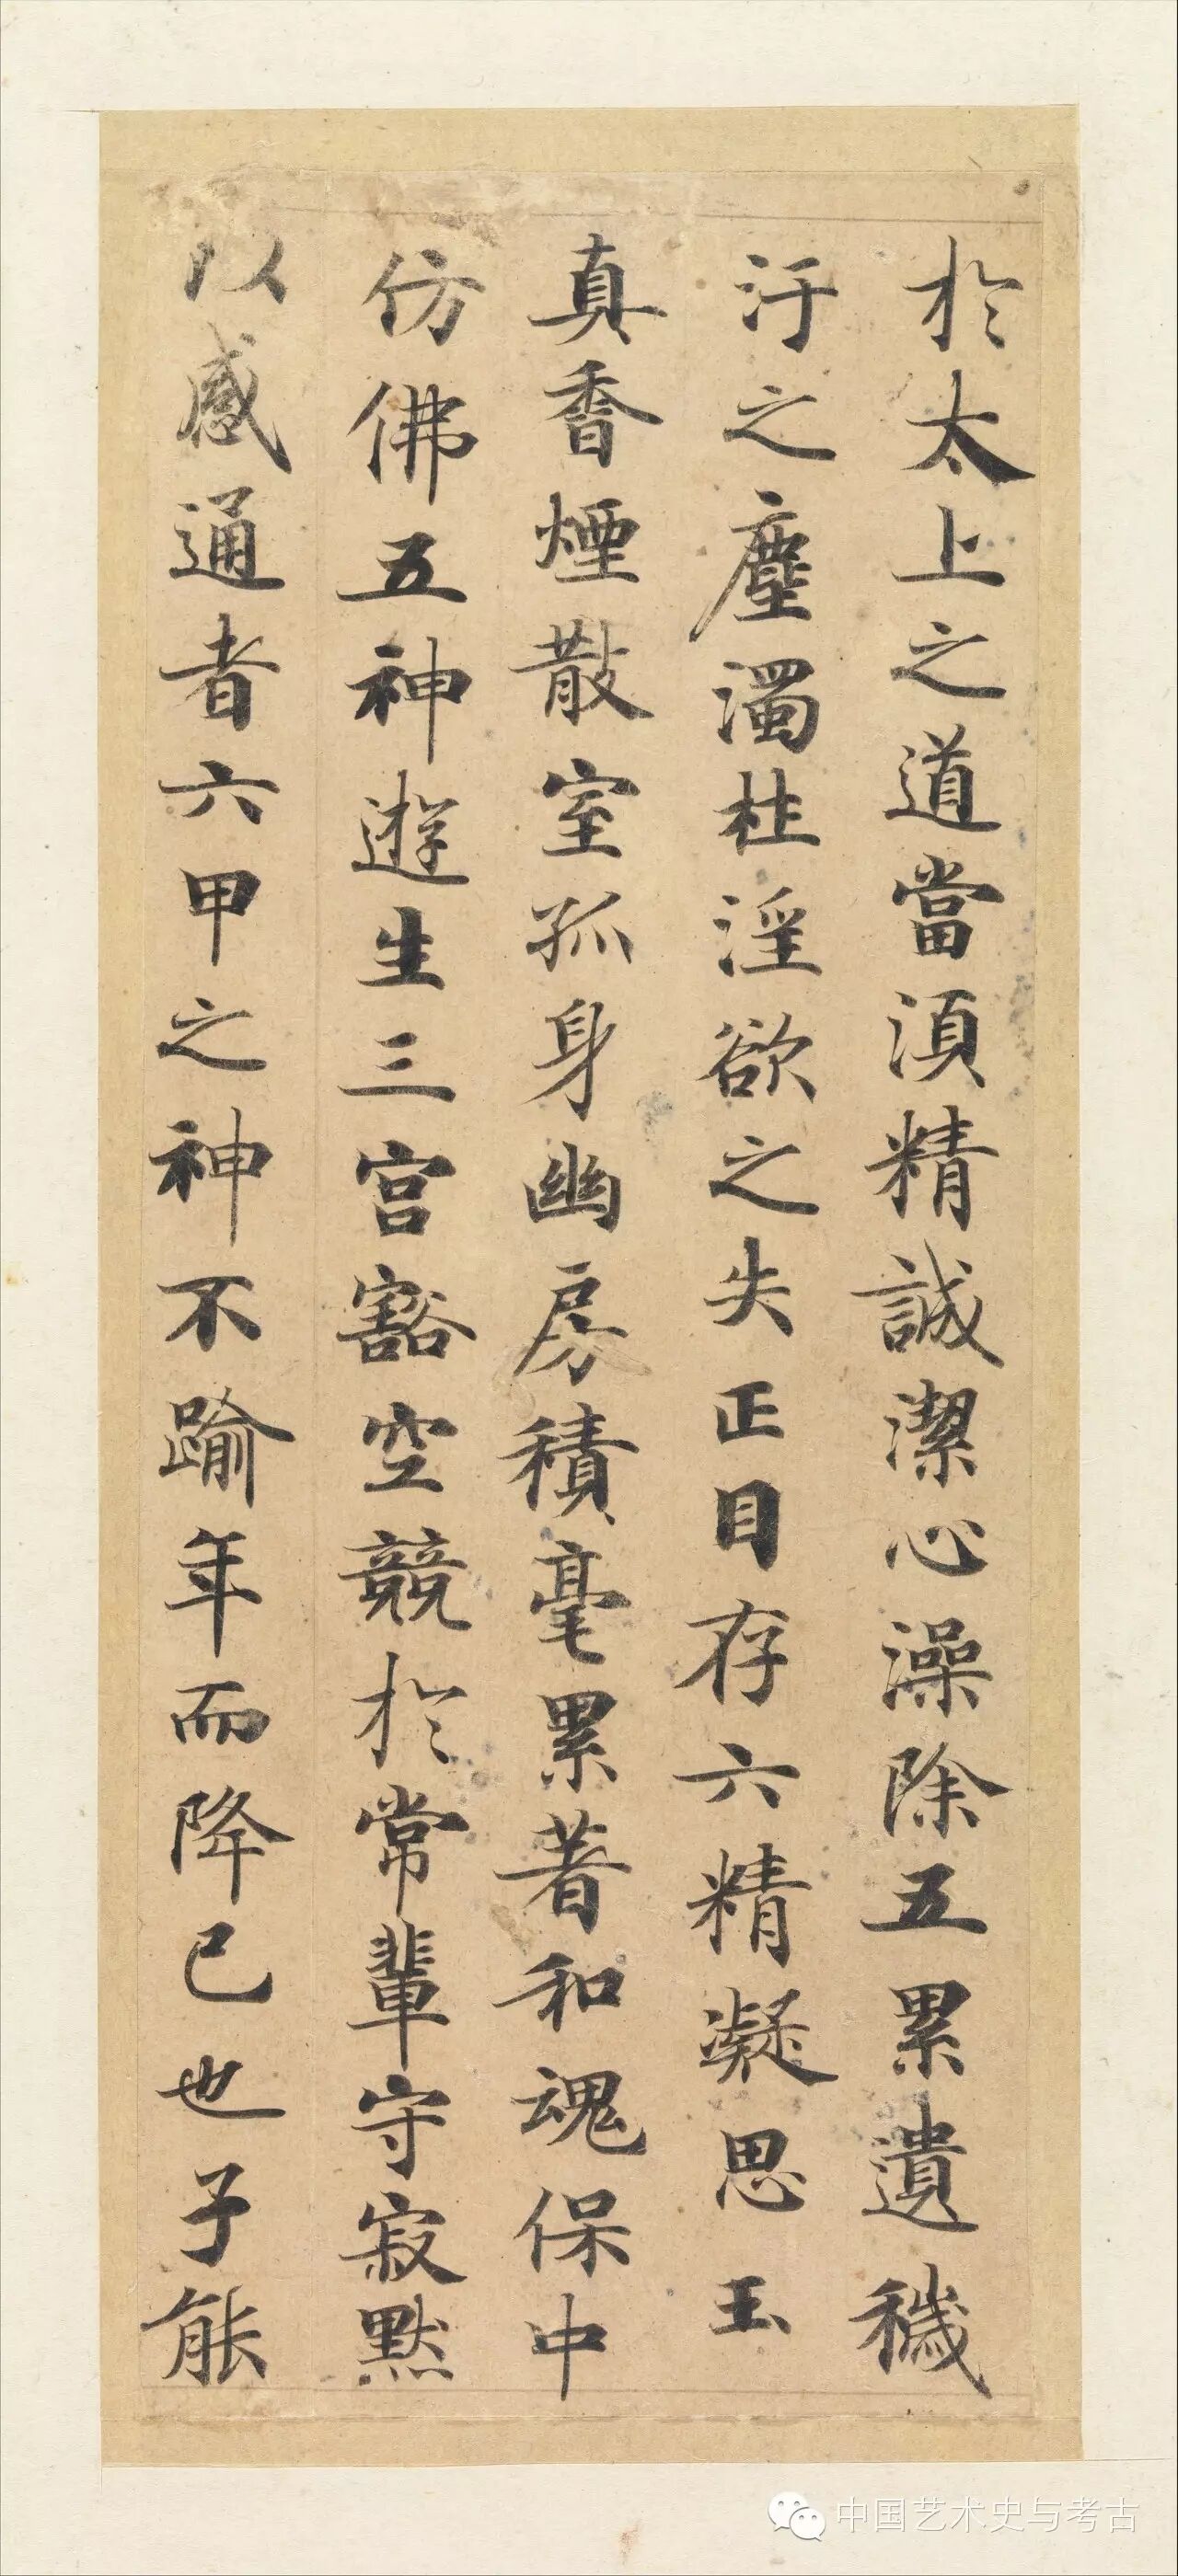 於太上之道當湏精誠潔心澡除五累遺穢
汙之塵濁杜淫欲之失正目存六精凝思玉
真香煙散室孤身幽房積毫累著和魂保中
仿佛五神遊生三宮豁空競於常輩守寂默
以感通者六甲之神不踰年而降已也子能
中国艺术史与考古